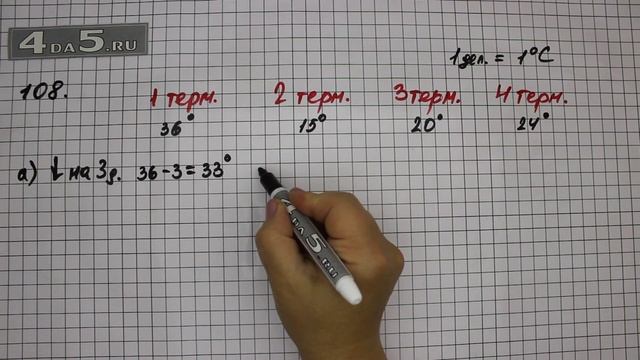 4DA5.RU
1 дел. = 1°C
108.
1 терм. 2 терм. 3 терм. 4 терм.
36° 15° 20° 24°
а) ↓ на 3д. 36-3=33°
4 DA 5.RU